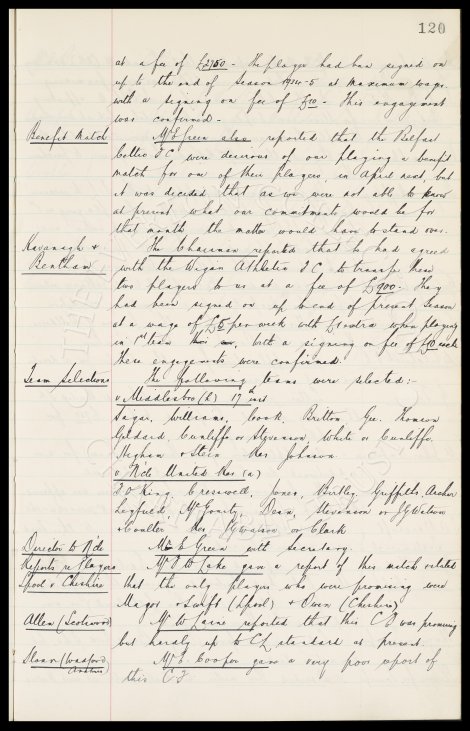 120
at a fee of £2750 - The player had been signed on
up to the end of season 1934-5 at maximum wage
with a signing on fee of £10 - This engagement
was confirmed -
Benefit Match
Mr E Green also reported that the Belfast
Celtic F C were desirous of our playing a benefit
match for one of their players, in April next, but
it was decided that as we were not able to know
at present what our commitments would be for
that month, the matter would have to stand over.
Kavanagh &
Bentham
The Chairman reported that he had agreed
with the Wigan Athletic F C to transfer these
two players to us at a fee of £900. They
had been signed on up to end of present season
at a wage of £5 per week with £1 extra when playing
in 1st team, with a signing on fee of £10 each
These engagements were confirmed.
Team Selections
The following teams were selected:-
v Middlesbro (h) 17th inst
Sagar, Williams, Cook, Britton, Gee, Thomson
Geldard, Cunliffe or Stevenson, White or Cunliffe,
Higham & Stein Res Johnson
v N'cle United Res (a)
King, Cresswell, Jones, Griffiths, Archer
Leyfield, McGourty, Dean, Stevenson or J G Watson
& Coulter Res J G Watson or Clark
Director to N'cle
Mr E Green with Secretary.
Reports re Players
L'pool v Cheshire
gave a report of this match & stated
that the only players who were promising were
Mayor & Swift (L'pool) & Owen (Cheshire)
Allen (Scotswood)
reported that this C F was promising
but hardly up to C L standard at present.
Sloan
Mr E Cooper gave a very poor report of
this C F